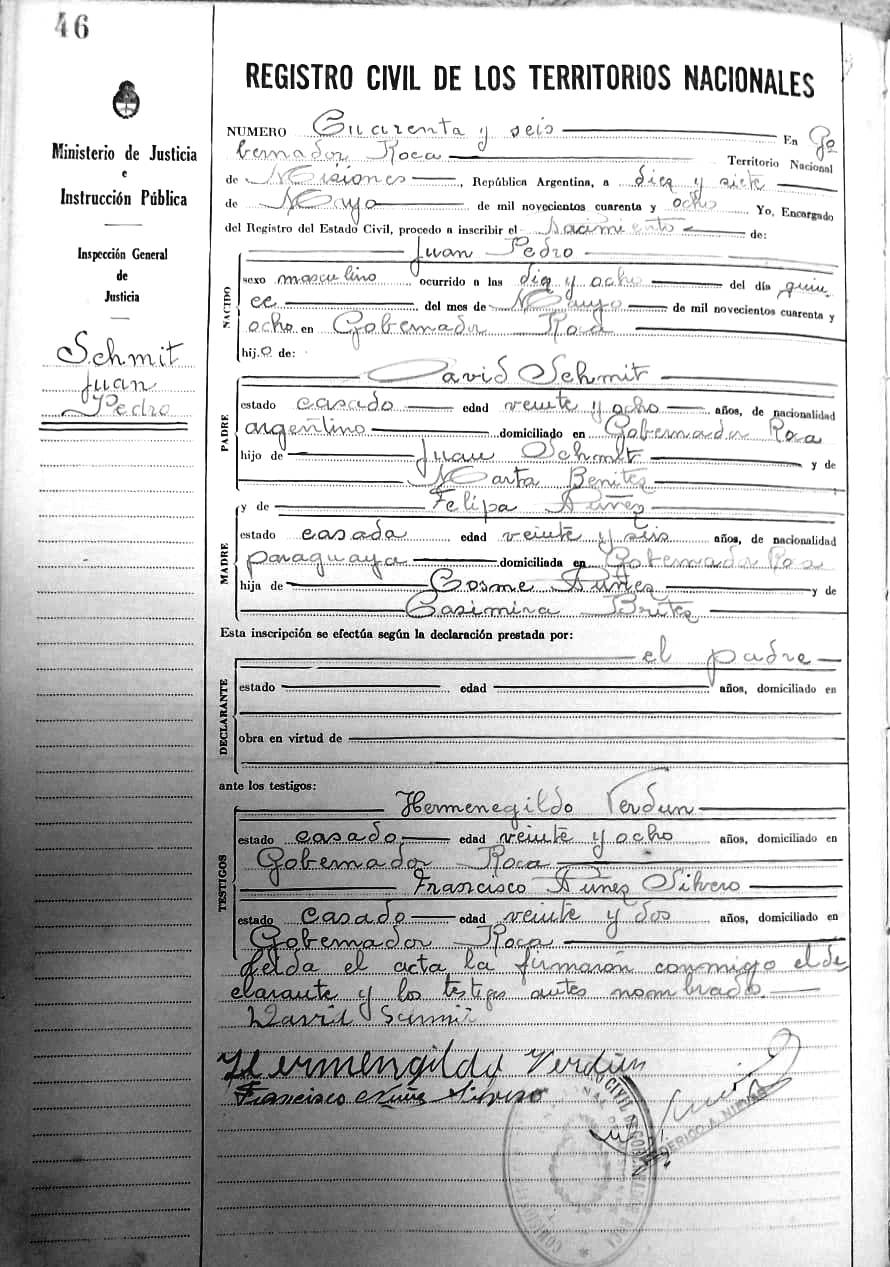 46
Ministerio de Justicia
e
Instrucción Pública
Inspección General
de
Justicia
Schmit
Juan
Pedro
REGISTRO CIVIL DE LOS TERRITORIOS NACIONALES
NUMERO Cuarenta y seis En Go
bernador Roca Territorio Nacional
de Misiones, República Argentina, a diez y siete
de Mayo de mil novecientos cuarenta y ocho Yo, Encargado
del Registro del Estado Civil, procedo a inscribir el nacimiento de:
NACIDO
Juan Pedro
sexo masculino ocurrido a las diez y ocho del día quin
ce del mes de Mayo de mil novecientos cuarenta y
ocho en Gobernador Roca
hijo de:
PADRE
David Schmit
estado casado edad veinte y ocho años, de nacionalidad
argentino domiciliado en Gobernador Roca
hijo de Juan Schmit y de
Marta Benites
MADRE
y de Felipa Nuñez
estado casada edad veinte y seis años, de nacionalidad
paraguaya domiciliada en Gobernador Roca
hija de Cosme Nuñez y de
Casimira Britez
Esta inscripción se efectúa según la declaración prestada por:
DECLARANTE
el padre
estado edad años, domiciliado en
obra en virtud de
ante los testigos:
TESTIGOS
Hermenegildo Verdun
estado casado edad veinte y ocho años, domiciliado en
Gobernador Roca
Francisco Nuñez Silvero
estado casado edad veinte y dos años, domiciliado en
Gobernador Roca
Leida el acta la firmaron conmigo el de
clarante y los testigos antes nombrado.
David
Hermengildo Verdún
Francisco Nuñe Silvero